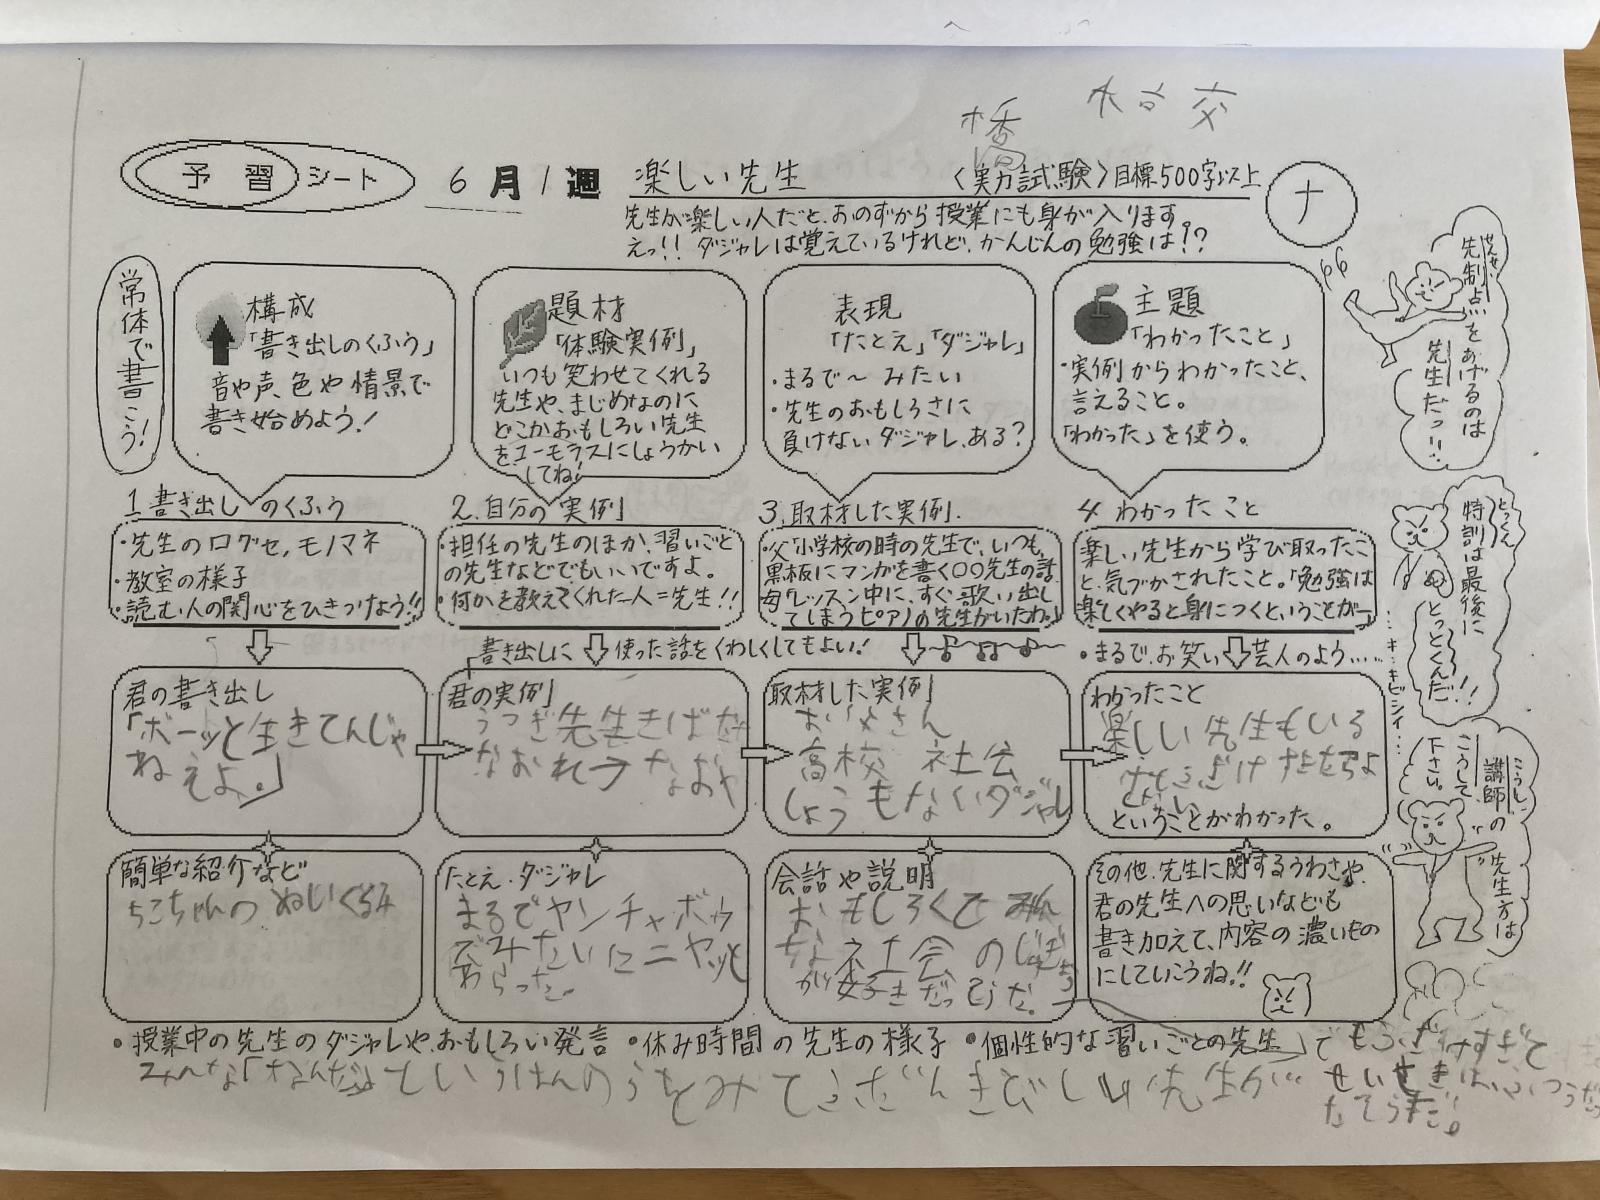 橋
木 谷 交
予習シート
6月1週
楽しい先生
〈実力試験〉目標500字以上
ナ
先生が楽しい人だと、おのずから授業にも身が入ります。
えっ!! ダジャレは覚えているけれど、かんじんの勉強は!?
常体で書こう!
構成
「書き出しのくふう」
音や声、色や情景で
書き始めよう!
題材
「体験実例」
いつも笑わせてくれる
先生や、まじめなのに
どこかおもしろい先生
を、ユーモラスにしょうかい
してね!
表現
「たとえ」「ダジャレ」
・まるで〜みたい
・先生のおもしろさに
負けないダジャレ、ある?
主題
「わかったこと」
・実例からわかったこと、
言えること。
「わかった」を使う。
せんせい
先制点をあげるのは
先生だっ!!
1 書き出しのくふう
・先生のログセ、モノマネ
・教室の様子
・読む人の関心をひきつけよう!!
2. 自分の実例
・担任の先生のほか、習いごと
の先生などでもいいですよ。
・何かを教えてくれた人=先生!!
3. 取材した実例.
・父「小学校の時の先生で、いつも、
黒板にマンガを書く〇〇先生の話
母「レッスン中に、すぐ歌い出し
てしまうピアノの先生がいたわ。」
4 わかったこと
楽しい先生から学び取ったこ
と、気づかされたこと。「勉強は
楽しくやると身につくということが―」
とっくん
特訓は最後に
とっとくんだ!!
…キ・キビシイ…
書き出しに使った話をくわしくしてもよい!
・まるで、お笑い芸人のよう……
君の書き出し
「ボーッと生きてんじゃ
ねえよ。」
君の実例
うつぎ先生きばだ
なおれ→なおや
取材した実例
お父さん
高校 社会
しょうもないダジャレ
わかったこと
楽しい先生もいる
ということがわかった。
こうし
講師の先生方は
こうして
下さい。
簡単な紹介など
ちこちゃんのぬいぐるみ
たとえ・ダジャレ
まるでヤンチャボウ
ズみたいにニヤッと
わらった。
会話や説明
おもしろくてみん
な社会のじゅぎょう
が好きだったそうだ。
その他、先生に関するうわさや、
君の先生への思いなども
書き加えて、内容の濃いもの
にしていこうね!!
・授業中の先生のダジャレや、おもしろい発言 ・休み時間の先生の様子 ・個性的な習いごとの先生
きびしい先生が